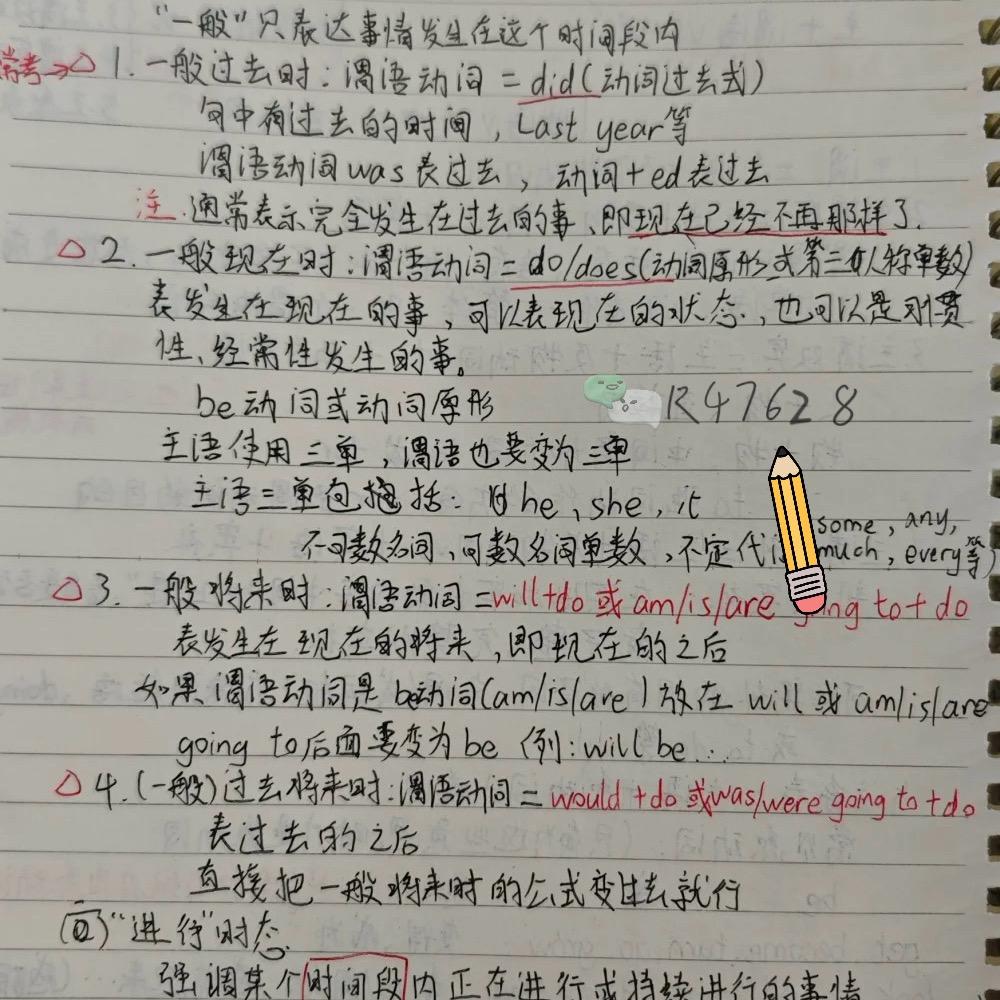 “一般”只表达事情发生在这个时间段内
常考→△ 1. 一般过去时:谓语动词 = did(动词过去式)
句中有过去的时间, Last year等
谓语动词was表过去, 动词+ed表过去
注.通常表示完全发生在过去的事、即现在已经不再那样了.
△ 2. 一般现在时:谓语动词 = do/does(动词原形或第三人称单数)
表发生在现在的事, 可以表现在的状态., 也可以是习惯
性、经常性发生的事。
be动词或动词原形
R47628
主语使用三单, 谓语也要变为三单
主语三单包括: he, she, it
some, any,
不可数名词, 可数名词单数, 不定代 much, every等)
△ 3. 一般将来时:谓语动词 =will+do 或 am/is/are going to + do
表发生在现在的将来, 即现在的之后
如果谓语动词是be动词(am/is/are)放在 will 或 am/is/are
going to后面要变为be (例:will be...
△ 4. (一般)过去将来时:谓语动词 = would +do 或was/were going to +do
表过去的之后
直接把一般将来时的公式变过去就行
“进行”时态.
强调某个时间段内正在进行或持续进行的事情